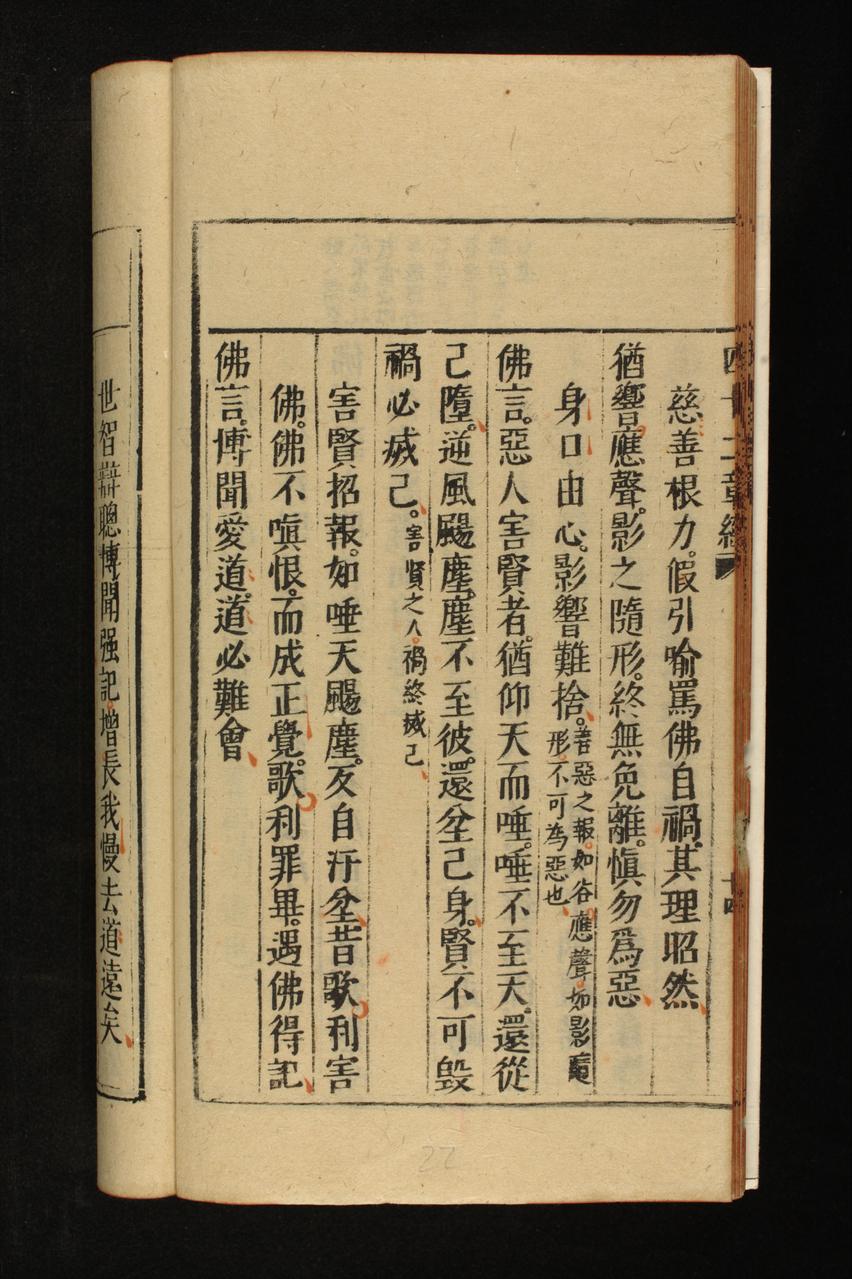 四十二章經
十四
慈善根力。假引喻罵佛自禍。其理昭然
猶響應聲。影之隨形。終無免離。愼勿爲惡
身口由心。影響難捨。善惡之報。如谷應聲。如影隨形。不可為惡也
佛言。惡人害賢者。猶仰天而唾。唾不至天。還從
己墮。逆風颺塵。塵不至彼。還坌己身。賢不可毀
禍必滅己。害賢之人。禍終滅己
害賢招報。如唾天颺塵。反自汙坌。昔歌利害
佛。佛不嗔恨。而成正覺。歌利罪畢。遇佛得記
佛言。博聞愛道。道必難會
世智辯聰。博聞强記。增長我慢。去道遠矣
22